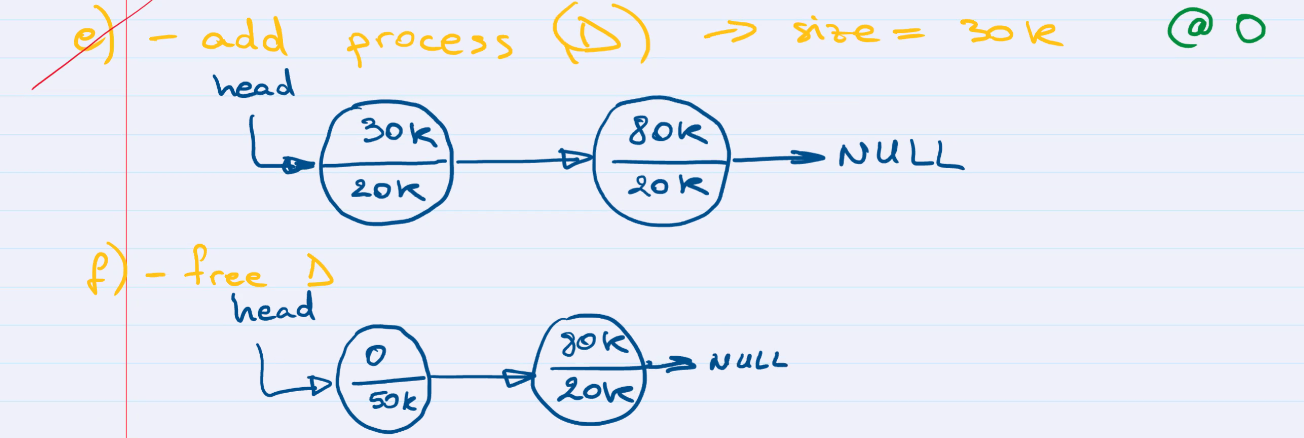 e) - add process (D) → size = 30k @ 0
head
30k 80k
20k 20k NULL
f) - free D
head
0 80k
50k 20k NULL